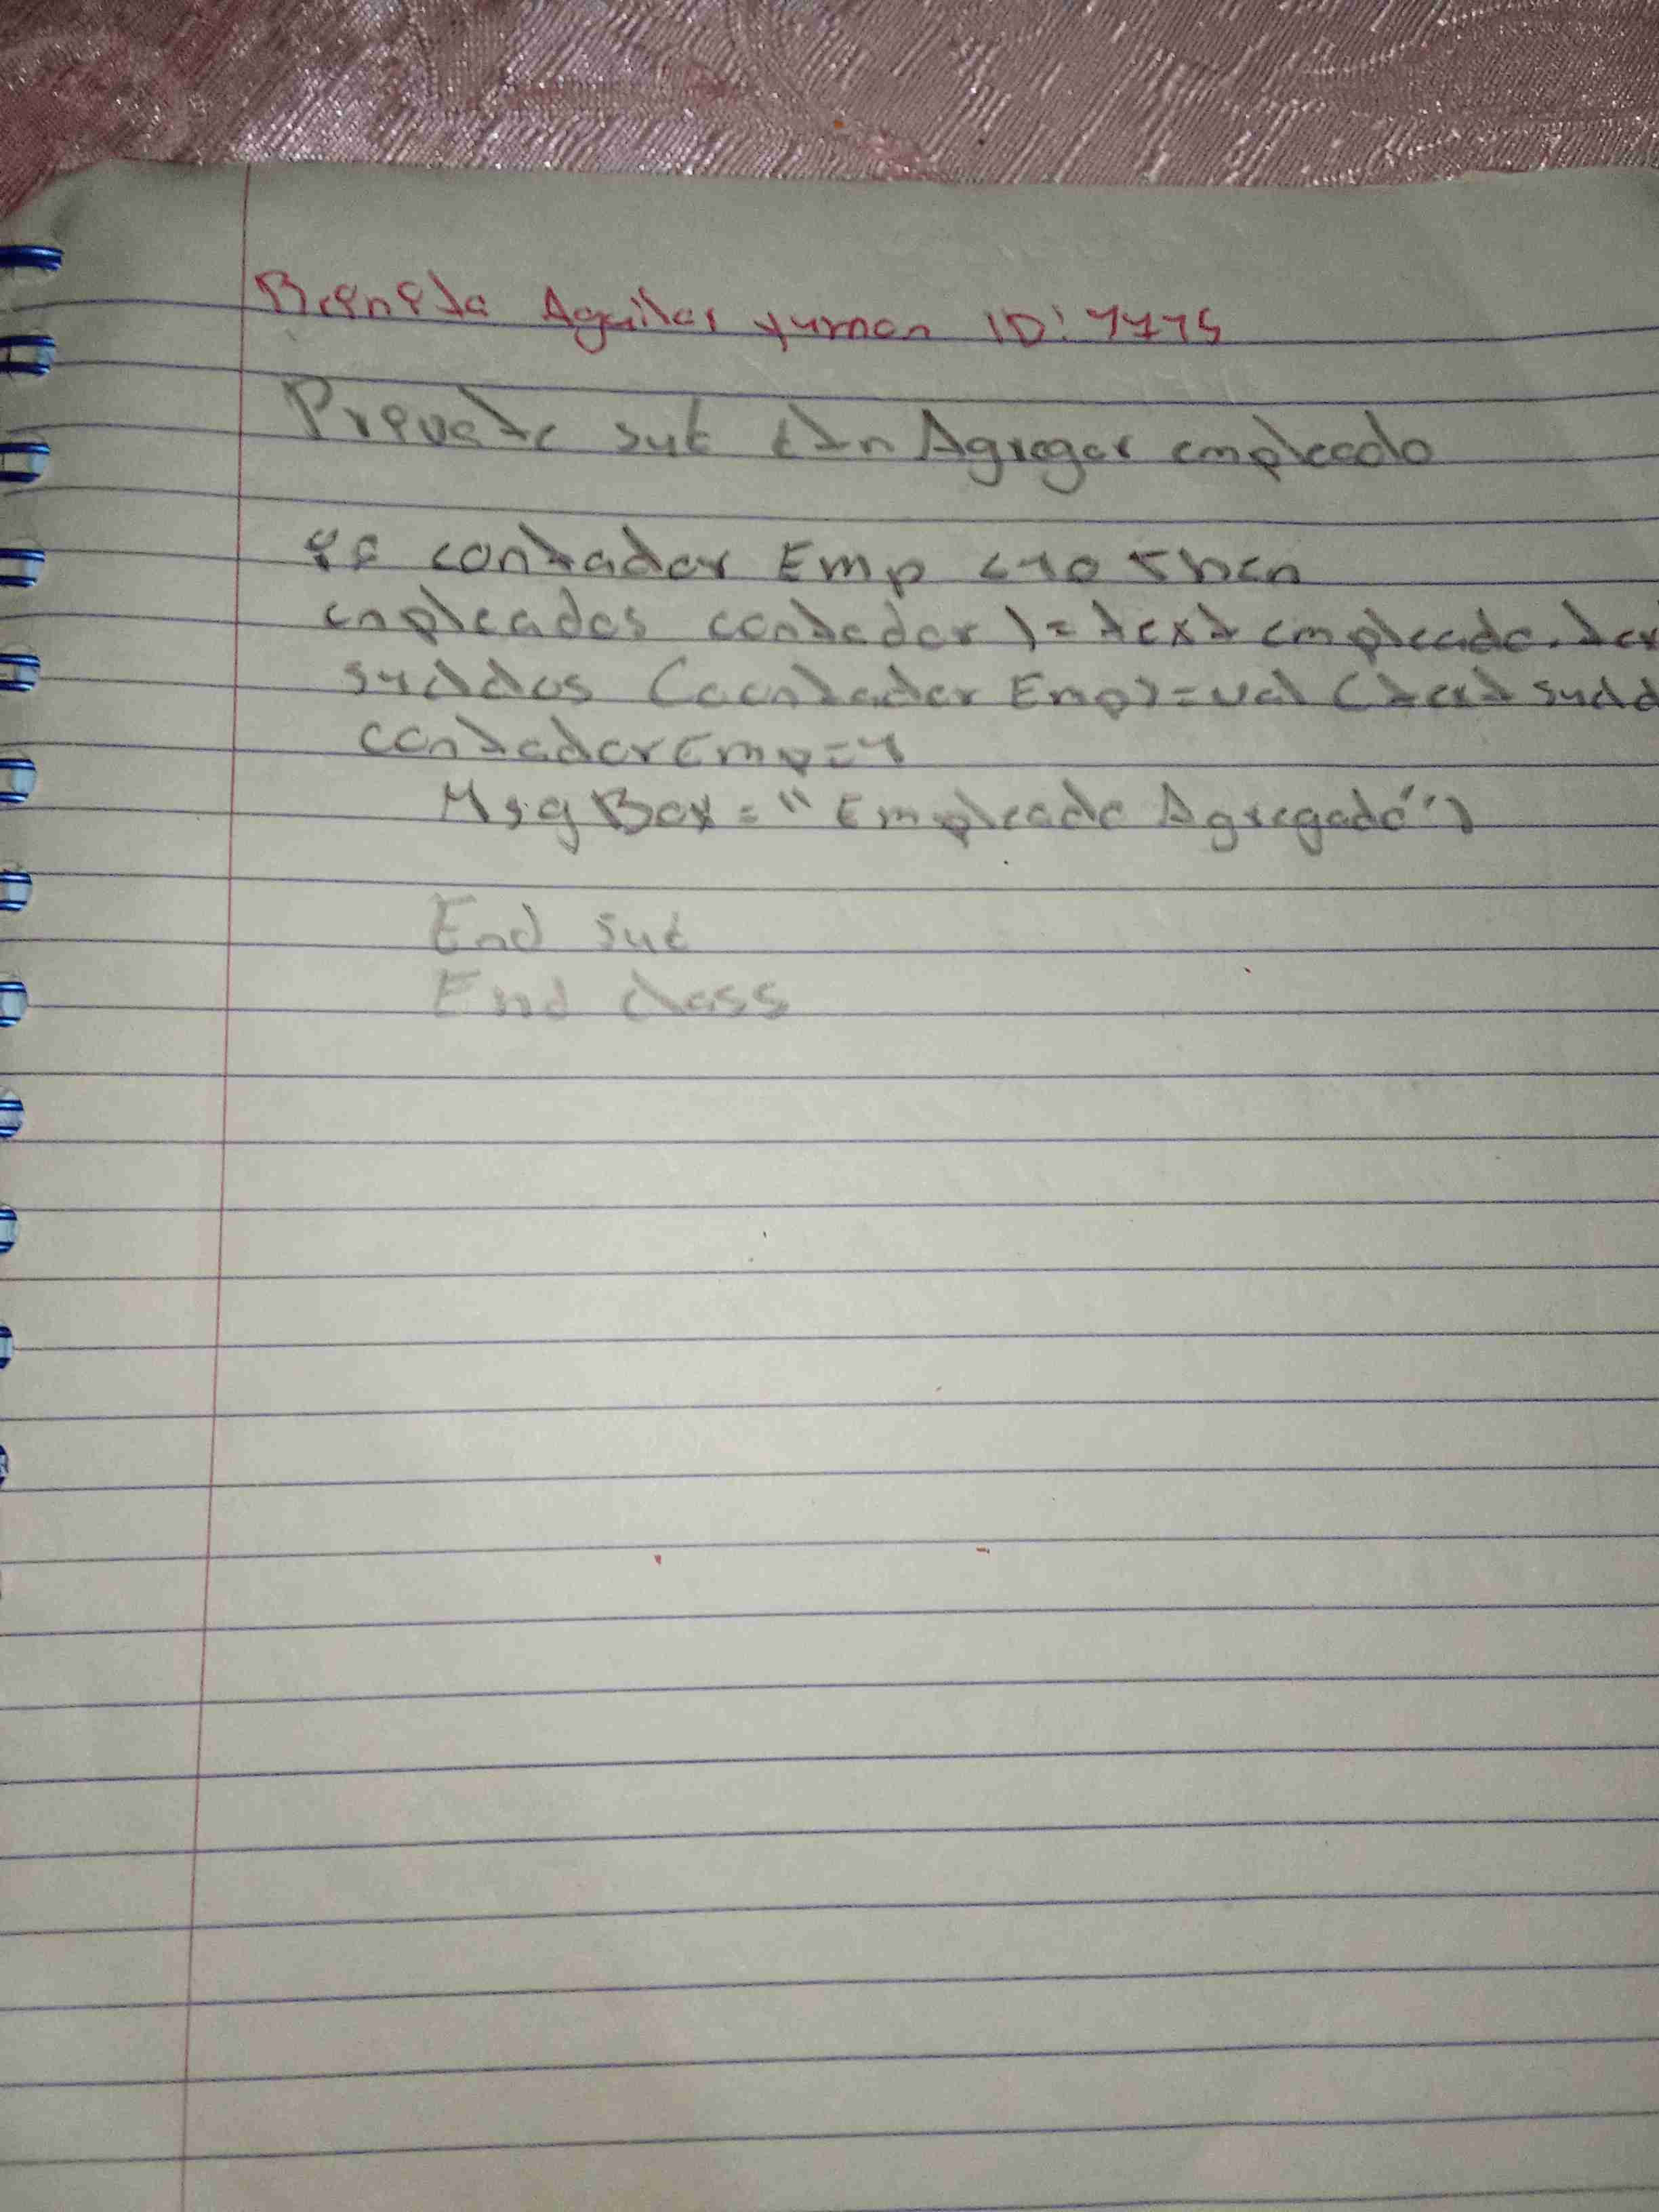 Benita Aguilar yuman ID: 7775
Prevate sub btn Agregar empleado
If contador Emp <10 Then
enpleados contador )= text empleado.tex
sueldos (contador Emp)=val (text sueld
contadorEmp=1
MsgBox="Empleado Agregado")
End sub
End class